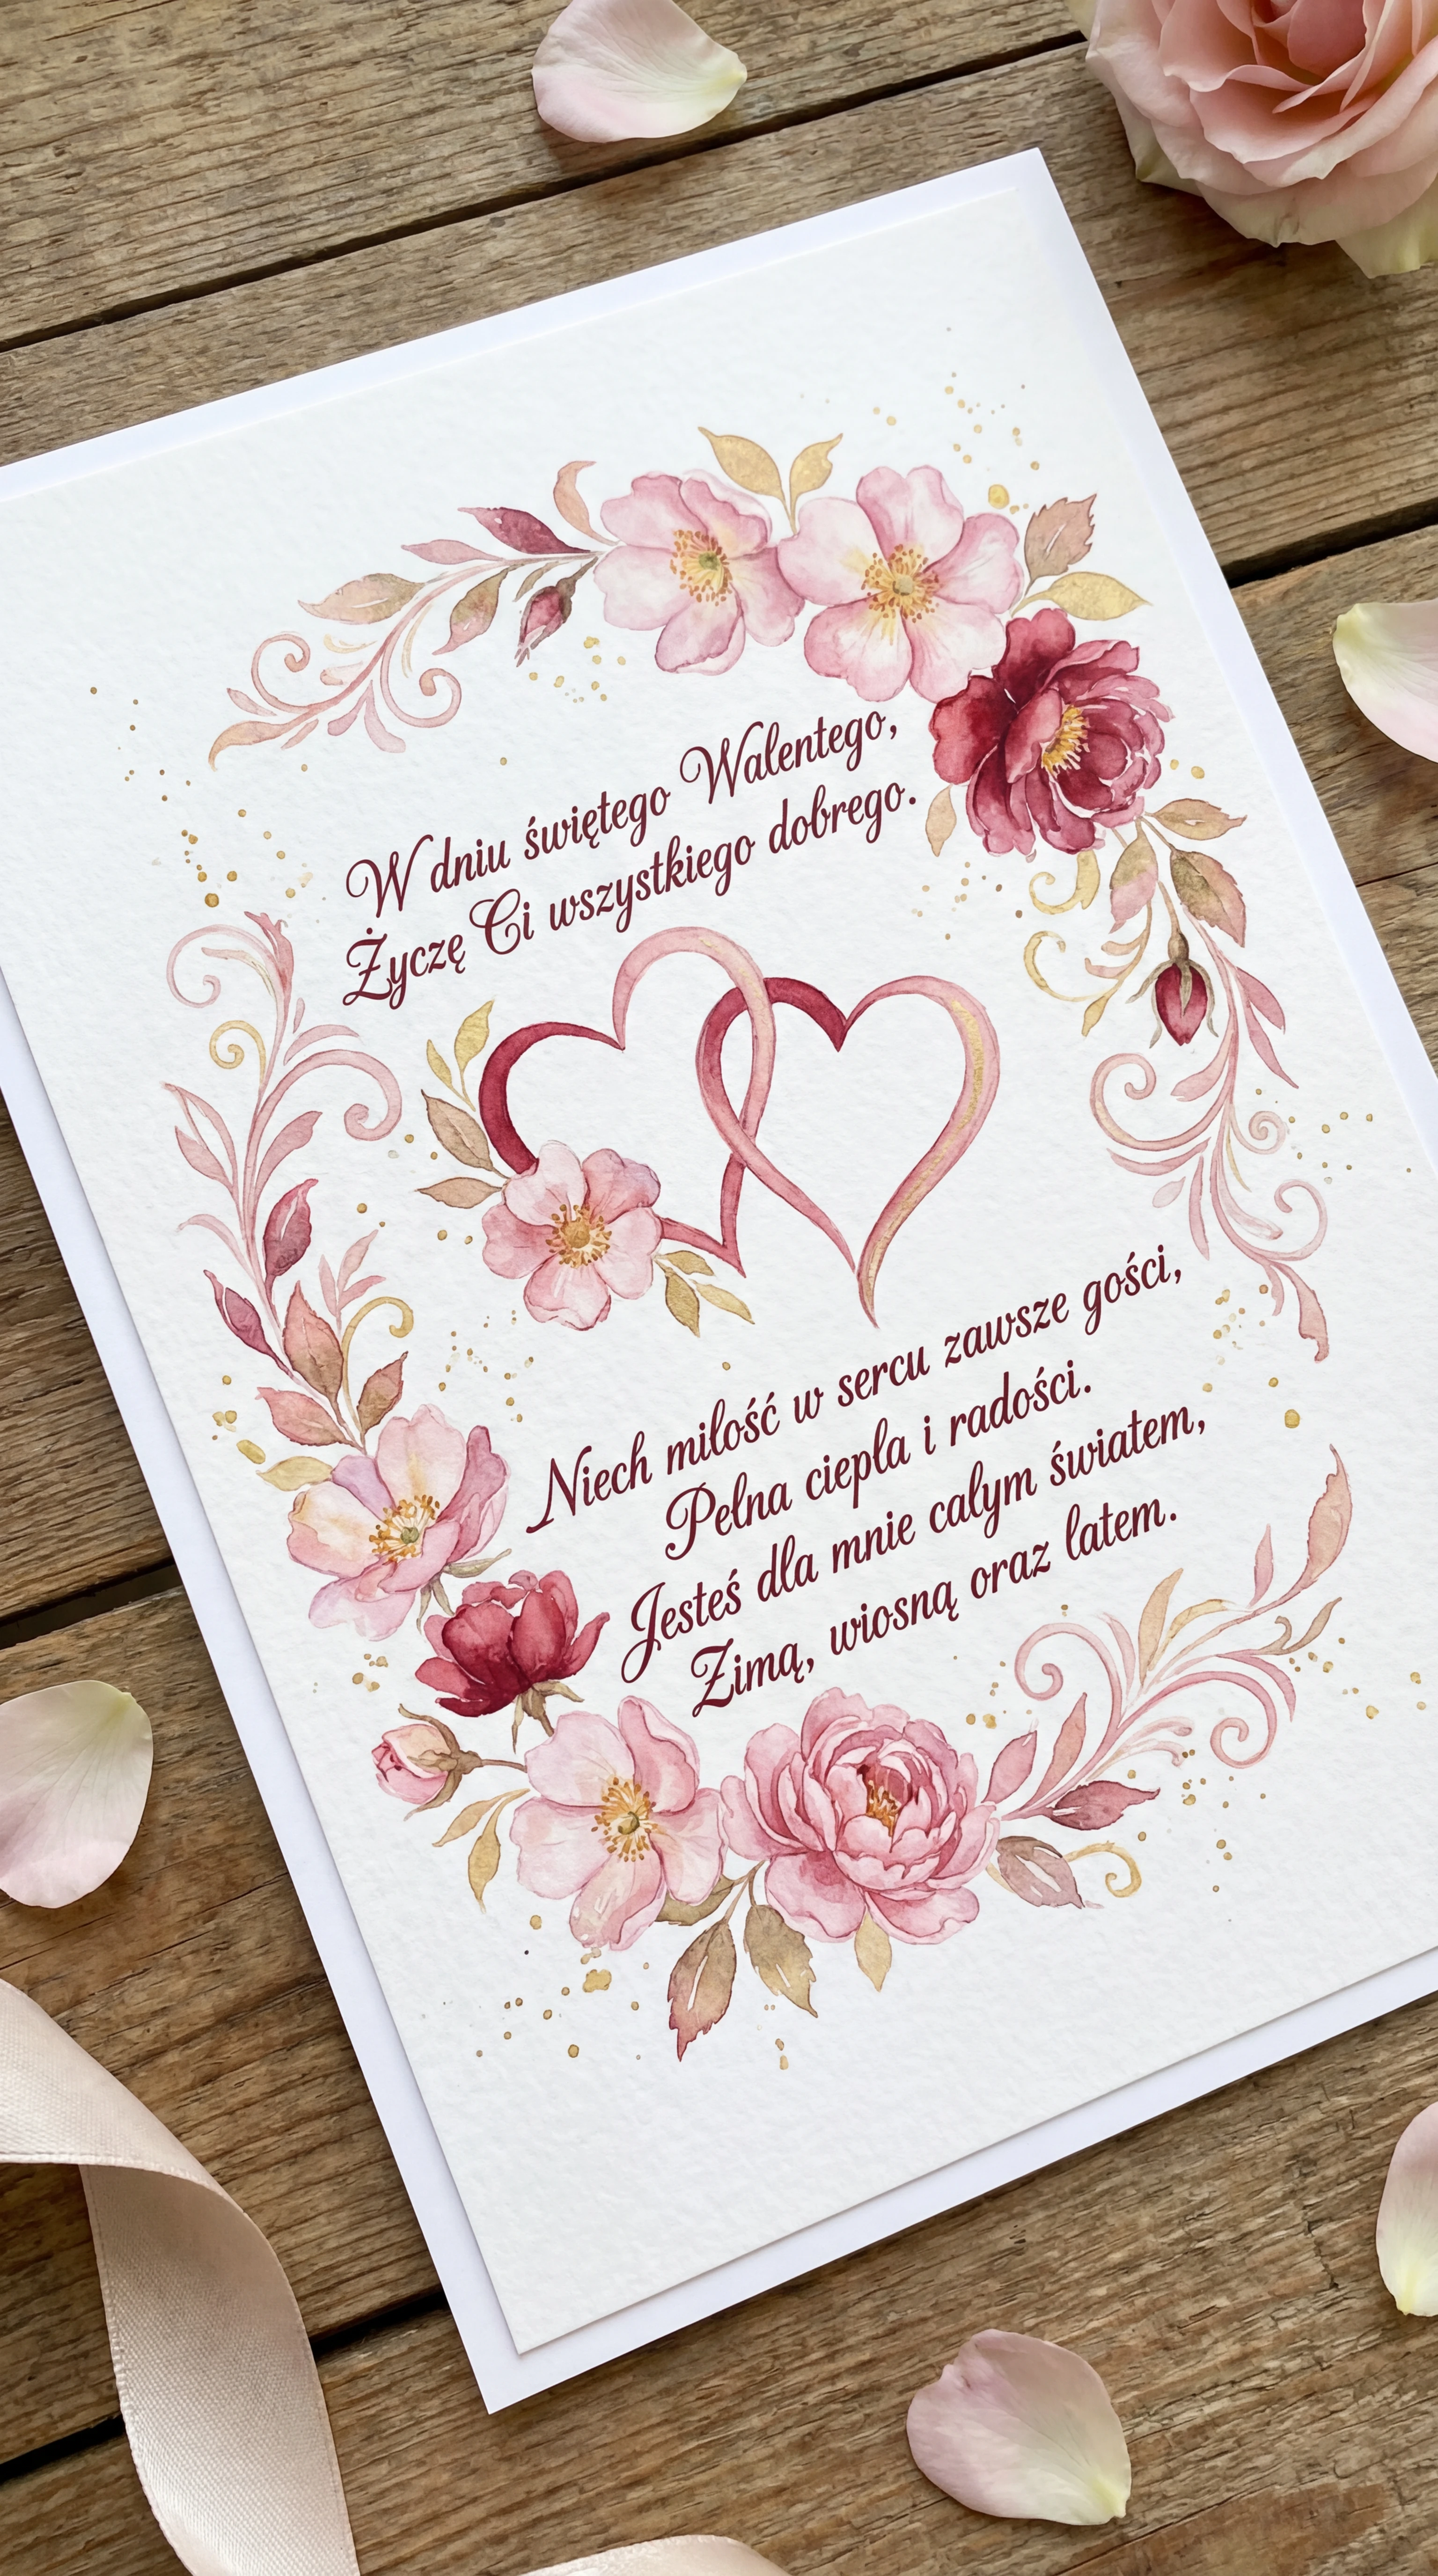 W dniu świętego Walentego,
Życzę Ci wszystkiego dobrego.
Niech miłość w sercu zawsze gości,
Pełna ciepła i radości.
Jesteś dla mnie całym światem,
Zimą, wiosną oraz latem.